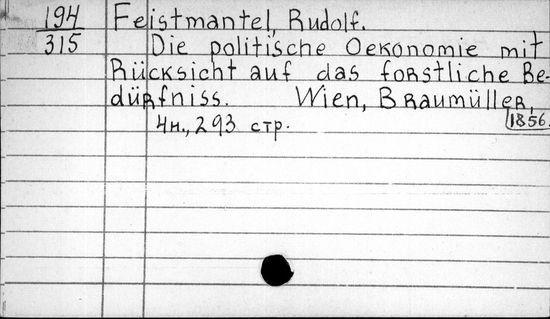 194 Feistmantel, Rudolf.
315 Die politische Oekonomie mit
Rücksicht auf das forstliche Be-
dürfniss. Wien, Braumüller,
1856.
4н., 293 стр.